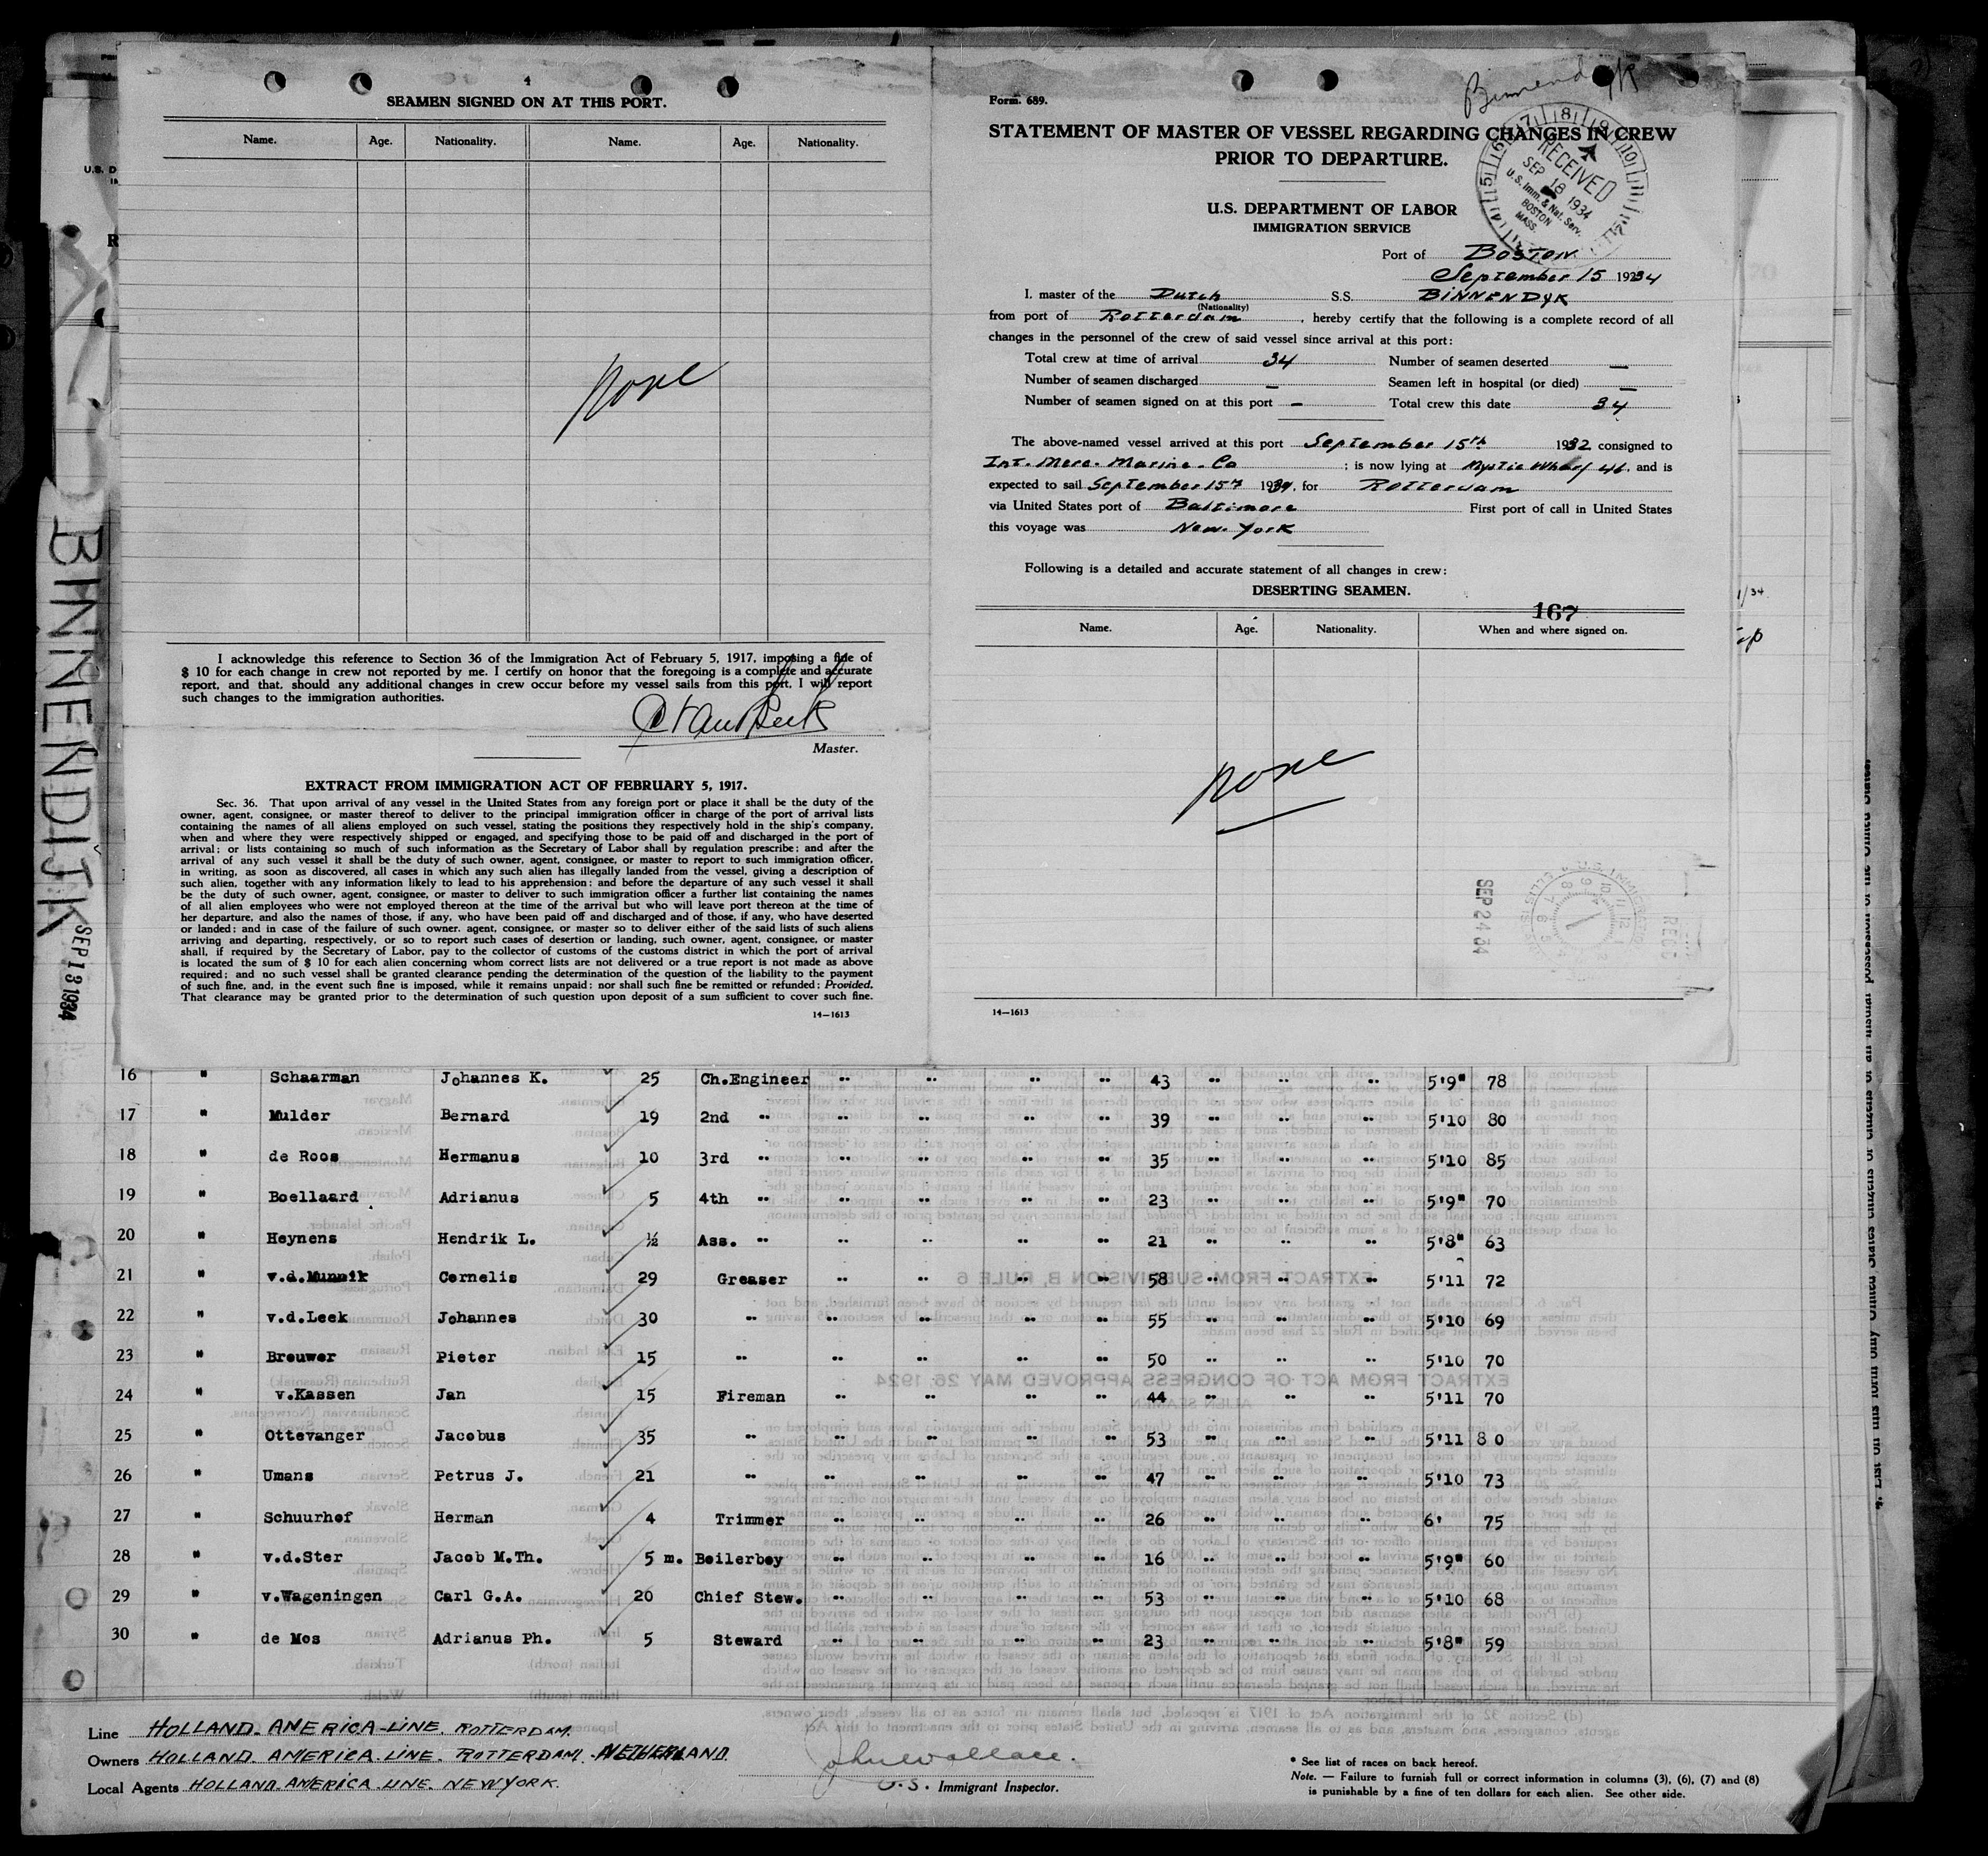 SEAMEN SIGNED ON AT THIS PORT.
Name. Age. Nationality. Name. Age. Nationality.
None
I acknowledge this reference to Section 36 of the Immigration Act of February 5, 1917, imposing a fine of
$ 10 for each change in crew not reported by me. I certify on honor that the foregoing is a complete and accurate
report, and that, should any additional changes in crew occur before my vessel sails from this port, I will report
such changes to the immigration authorities.
Master.
EXTRACT FROM IMMIGRATION ACT OF FEBRUARY 5, 1917.
Sec. 36. That upon arrival of any vessel in the United States from any foreign port or place it shall be the duty of the
owner, agent, consignee, or master thereof to deliver to the principal immigration officer in charge of the port of arrival lists
containing the names of all aliens employed on such vessel, stating the positions they respectively hold in the ship's company,
when and where they were respectively shipped or engaged, and specifying those to be paid off and discharged in the port of
arrival; or lists containing so much of such information as the Secretary of Labor shall by regulation prescribe; and after the
arrival of any such vessel it shall be the duty of such owner, agent, consignee, or master to report to such immigration officer,
in writing, as soon as discovered, all cases in which any such alien has illegally landed from the vessel, giving a description of
such alien, together with any information likely to lead to his apprehension; and before the departure of any such vessel it shall
be the duty of such owner, agent, consignee, or master to deliver to such immigration officer a further list containing the names
of all alien employees who were not employed thereon at the time of the arrival but who will leave port thereon at the time of
her departure, and also the names of those, if any, who have been paid off and discharged and of those, if any, who have deserted
or landed; and in case of the failure of such owner. agent, consignee, or master so to deliver either of the said lists of such aliens
arriving and departing, respectively, or so to report such cases of desertion or landing, such owner, agent, consignee, or master
shall, if required by the Secretary of Labor, pay to the collector of customs of the customs district in which the port of arrival
is located the sum of $ 10 for each alien concerning whom correct lists are not delivered or a true report is not made as above
required; and no such vessel shall be granted clearance pending the determination of the question of the liability to the payment
of such fine, and, in the event such fine is imposed, while it remains unpaid; nor shall such fine be remitted or refunded; Provided,
That clearance may be granted prior to the determination of such question upon deposit of a sum sufficient to cover such fine.
14—1613
Binnendyk
Form. 689.
STATEMENT OF MASTER OF VESSEL REGARDING CHANGES IN CREW
PRIOR TO DEPARTURE.
RECEIVED
SEP 18 1934
U.S. Imm. & Nat. Serv.
BOSTON
MASS.
U.S. DEPARTMENT OF LABOR
IMMIGRATION SERVICE
Port of Boston
September 15 1934
I, master of the Dutch S.S. BINNENDYK
(Nationality)
from port of Rotterdam, hereby certify that the following is a complete record of all
changes in the personnel of the crew of said vessel since arrival at this port:
Total crew at time of arrival 34 Number of seamen deserted —
Number of seamen discharged — Seamen left in hospital (or died) —
Number of seamen signed on at this port — Total crew this date 34
The above-named vessel arrived at this port September 15th 1932 consigned to
Int. Merc. Marine. Co ; is now lying at Mystic Wharf 46, and is
expected to sail September 15th 1934, for Rotterdam
via United States port of Baltimore First port of call in United States
this voyage was New York
Following is a detailed and accurate statement of all changes in crew:
DESERTING SEAMEN.
167
Name. Age. Nationality. When and where signed on.
None
SEP 24 34
14—1613
BINNENDIJK
SEP 13 1934
16 " Schaarman Johannes K. 25 Ch.Engineer " " " " 43 " " " 5'9" 78
17 " Mulder Bernard 19 2nd " " " " " 39 " " " 5'10 80
18 " de Roos Hermanus 10 3rd " " " " " 35 " " " 5'10 85
19 " Boellaard Adrianus 5 4th " " " " " 23 " " " 5'9" 70
20 " Heynens Hendrik L. ½ Ass. " " " " " 21 " " " 5'8" 63
21 " v.d.Munnik Cornelis 29 Greaser " " " " 58 " " " 5'11 72
22 " v.d.Leek Johannes 30 " " " " " 55 " " " 5'10 69
23 " Brouwer Pieter 15 " " " " " 50 " " " 5'10 70
24 " v.Kassen Jan 15 Fireman " " " " 44 " " " 5'11 70
25 " Ottevanger Jacobus 35 " " " " " 53 " " " 5'11 80
26 " Umans Petrus J. 21 " " " " " 47 " " " 5'10 73
27 " Schuurhof Herman 4 Trimmer " " " " 26 " " " 6' 75
28 " v.d.Ster Jacob M.Th. 5 m. Boilerboy " " " " 16 " " " 5'9" 60
29 " v.Wageningen Carl G.A. 20 Chief Stew. " " " " 53 " " " 5'10 68
30 " de Mos Adrianus Ph. 5 Steward " " " " 23 " " " 5'8" 59
Line HOLLAND-AMERICA-LINE, ROTTERDAM.
Owners HOLLAND-AMERICA-LINE. ROTTERDAM, NETHERLAND.
Local Agents HOLLAND-AMERICA-LINE. NEW YORK.
John Wallace.
U.S. Immigrant Inspector.
* See list of races on back hereof.
Note. — Failure to furnish full or correct information in columns (3), (6), (7) and (8)
is punishable by a fine of ten dollars for each alien. See other side.